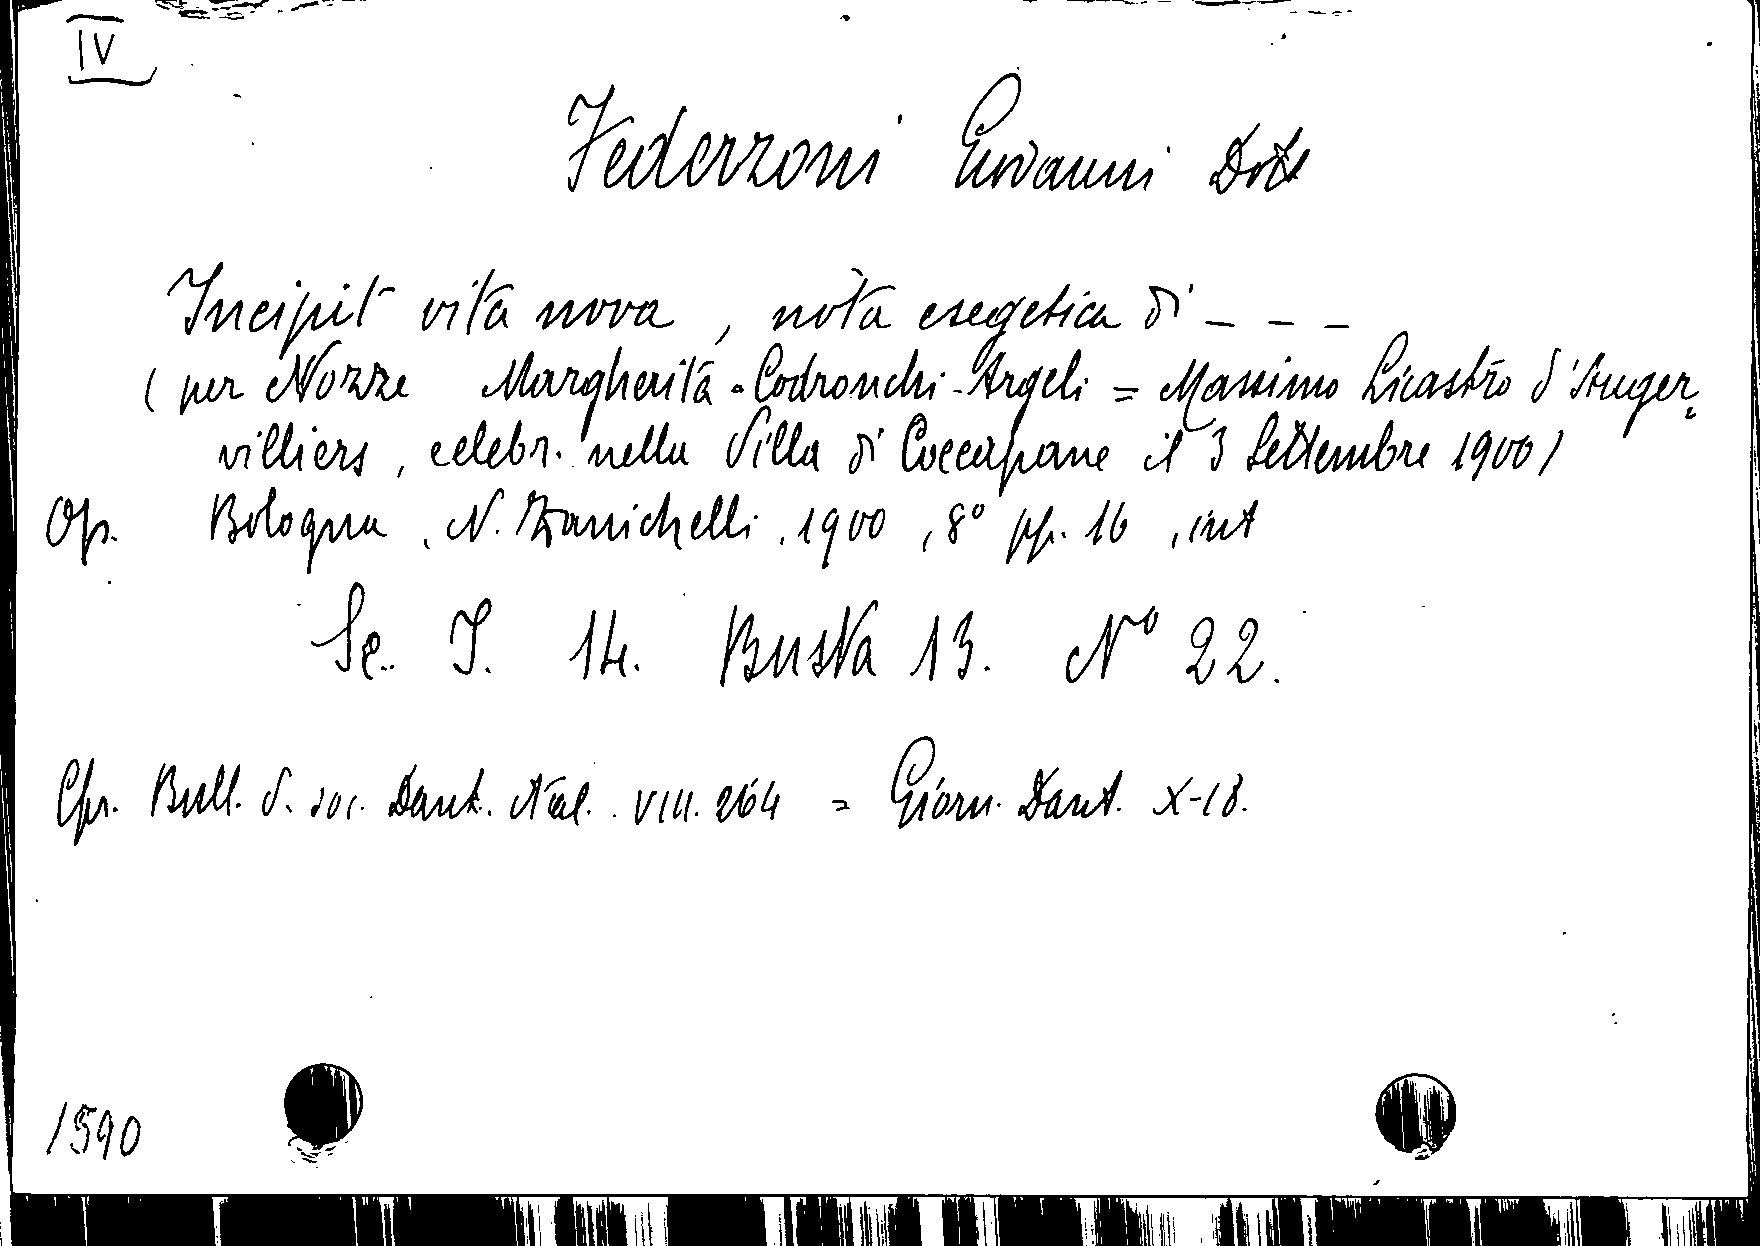 IV
Federzoni Giovanni Dott
Incipit vita nova, nota esegetica di _ _ _
( per Nozze Margherita-Codronchi-Argeli = Massimo Licastro d'
villiers, celebr. nella Villa di Coccapane il 3 Settembre 1900)
Op. Bologna, N. Zanichelli, 1900, 8° pp. 16, int
Sc. I. 14. Busta 13. N° 22.
Cfr. Bull. d. soc. Dant. Ital. VIII. 264 = Giorn. Dant. X-18.
1590